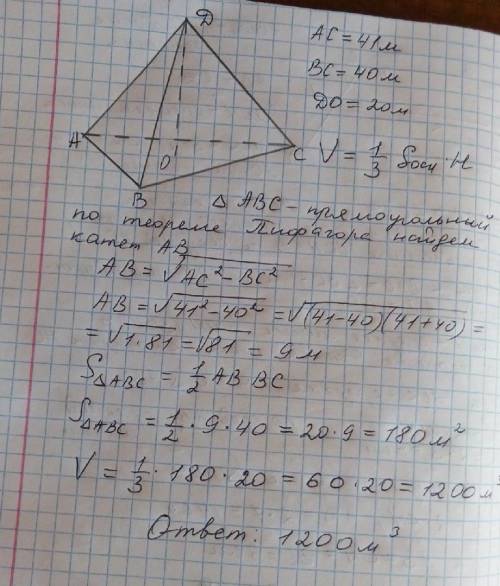 D
AC = 41 м
BC = 40 м
DO = 20 м
A
O
C
B
V = 1/3 Sосн · H
△ ABC - прямоугольный
по теореме Пифагора найдем
катет AB
AB = √(AC² - BC²)
AB = √(41² - 40²) = √((41-40)(41+40)) =
= √(1·81) = √81 = 9 м
S△ABC = 1/2 AB BC
S△ABC = 1/2 · 9 · 40 = 20 · 9 = 180 м²
V = 1/3 · 180 · 20 = 60 · 20 = 1200 м³
Ответ: 1200 м³